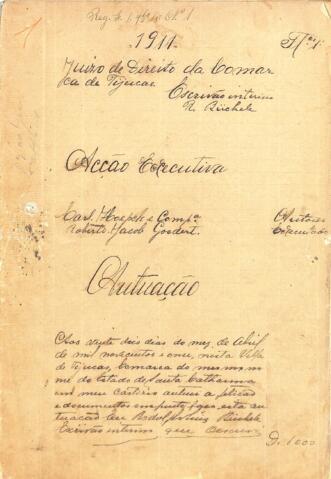 1911.
Juizo de Direito da Comar
ca de Tijucas
Escrivão interino
R. Büchele
Acção Executiva
Carl Hoepck e Compª Autores
Roberto Jacob Goedert. Executado
Autuação
Aos vinte dois dias do mez de Abril
de mil novecentos e onze, nesta Villa
de Tijucas, Comarca do mesmo no
me do Estado de Santa Catharina
em meu Cartorio autuei a petição
e documentos em frente, do que fiz esta au
tuação. Eu Rodolpho Büchele
Escrivão interino que escrevi